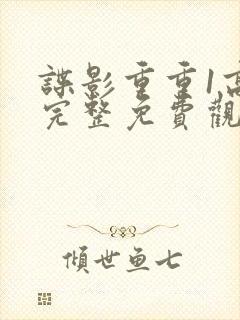 諜影重重1高
完整免費觀
傾世魚七